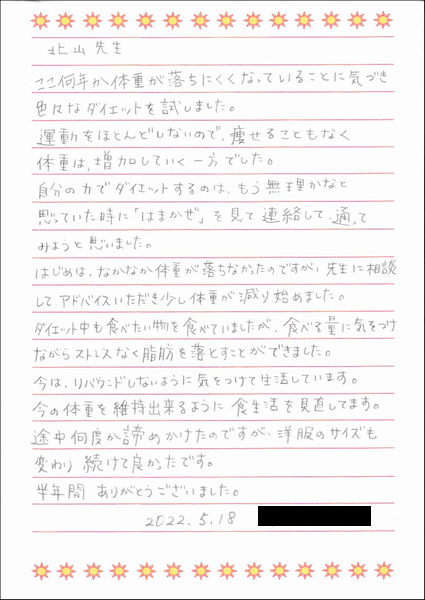 北山先生
ここ何年か体重が落ちにくくなっていることに気づき
色々なダイエットを試しました。
運動をほとんどしないので、痩せることもなく
体重は、増加していく一方でした。
自分の力でダイエットするのは、もう無理かなと
思っていた時に「はまかぜ」を見て連絡して、通って
みようと思いました。
はじめは、なかなか体重が落ちなかったのですが、先生に相談
してアドバイスいただき少し体重が減り始めました。
ダイエット中も食べたい物を食べていましたが、食べる量に気をつけ
ながらストレスなく脂肪を落とすことができました。
今は、リバウンドしないように気をつけて生活しています。
今の体重を維持出来るように食生活を見直してます。
途中何度か諦めかけたのですが、洋服のサイズも
変わり続けて良かったです。
半年間ありがとうございました。
2022.5.18